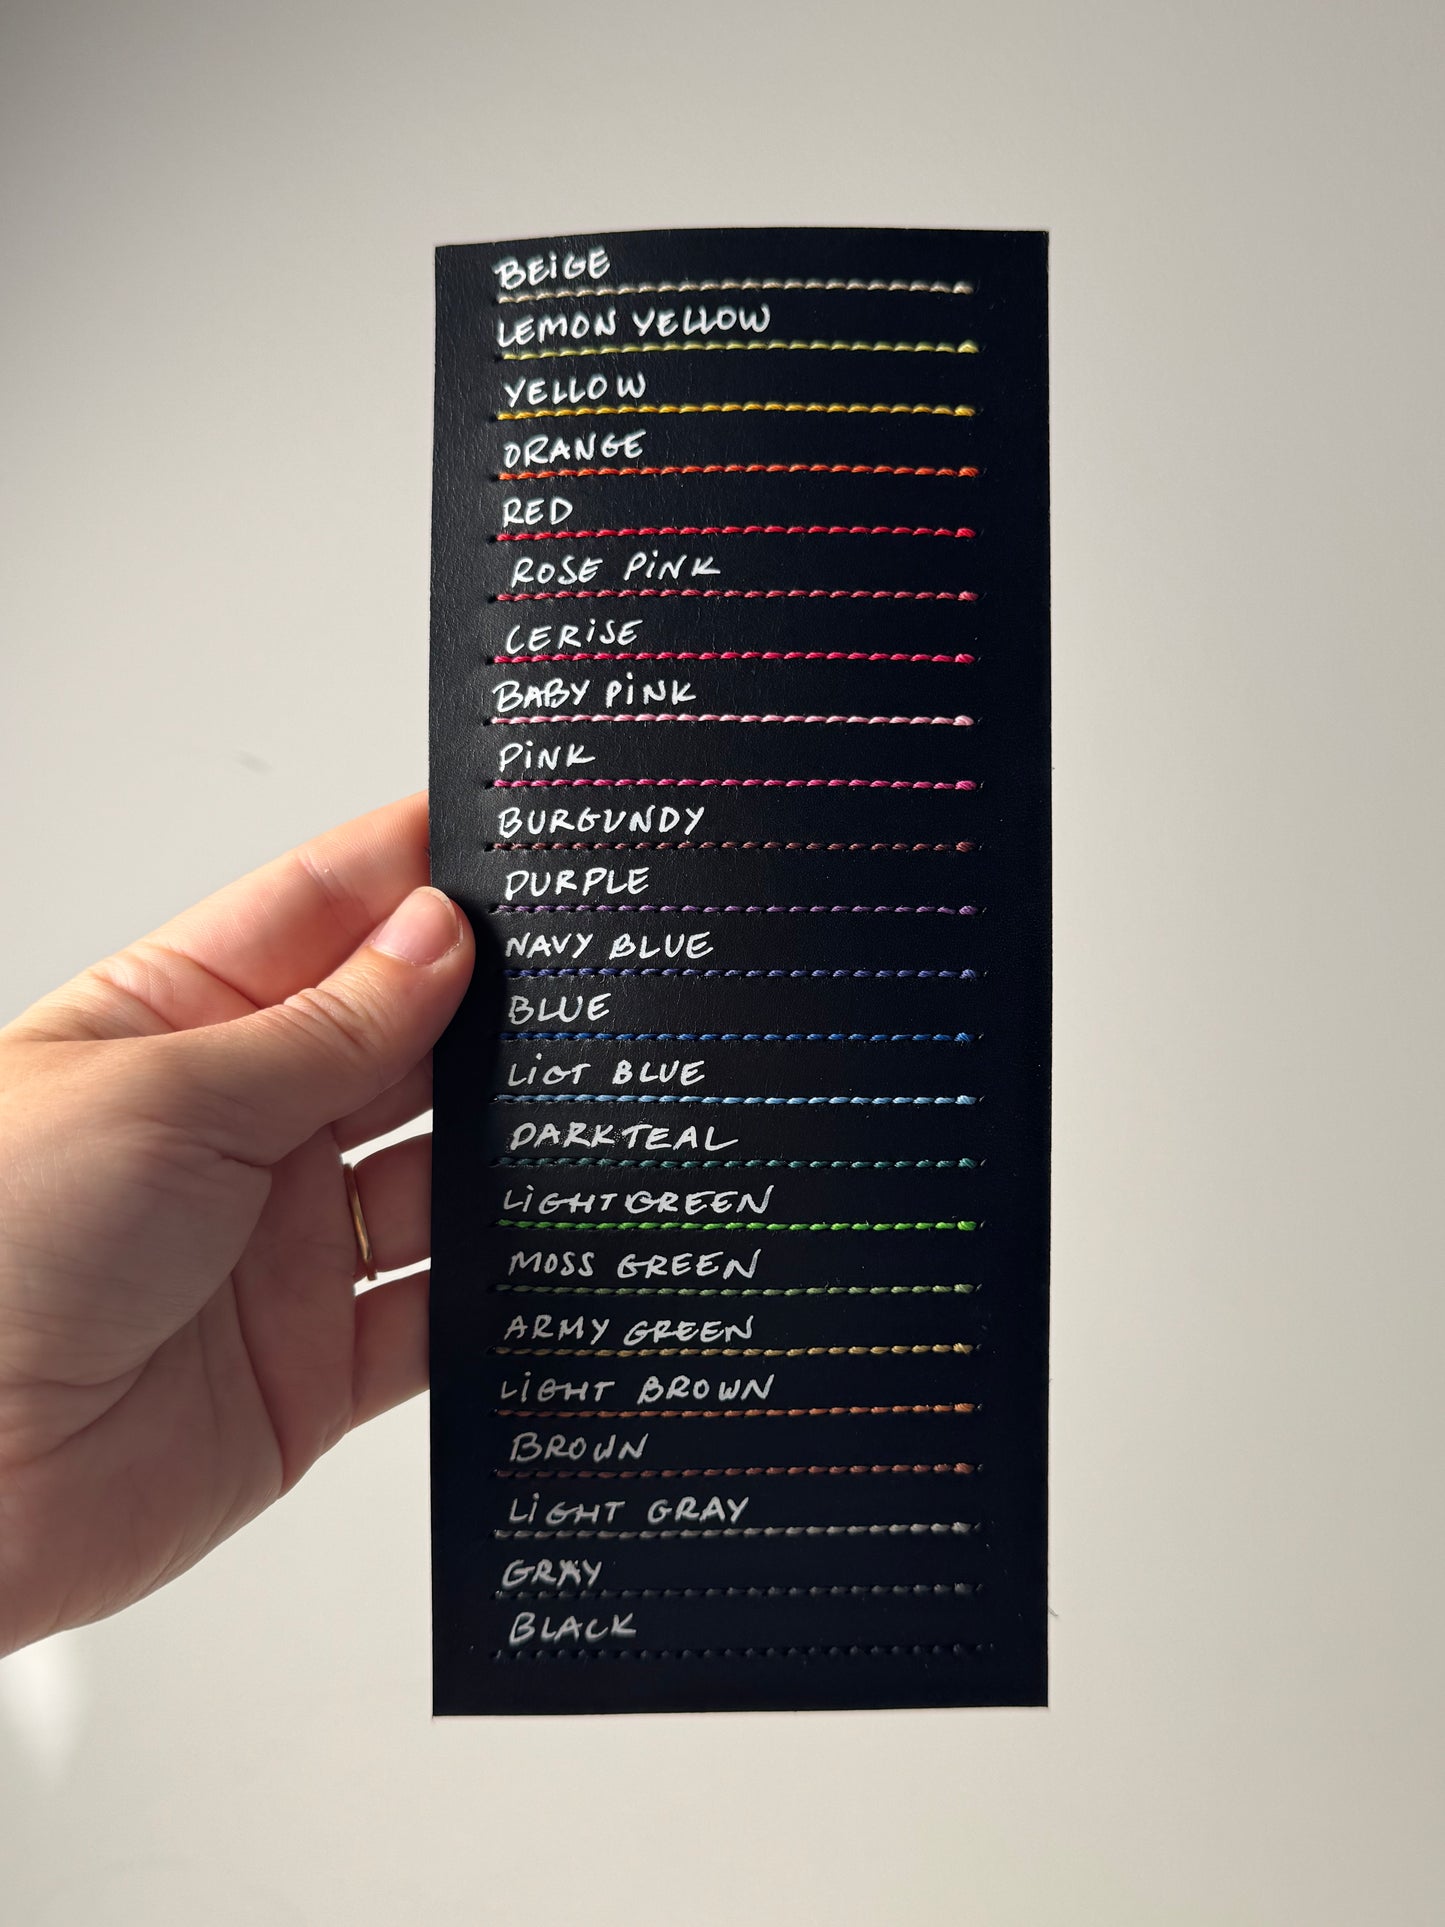 BEIGE
LEMON YELLOW
YELLOW
ORANGE
RED
ROSE PINK
CERISE
BABY PINK
PINK
BURGUNDY
PURPLE
NAVY BLUE
BLUE
LIGT BLUE
DARK TEAL
LIGHT GREEN
MOSS GREEN
ARMY GREEN
LIGHT BROWN
BROWN
LIGHT GRAY
GRAY
BLACK